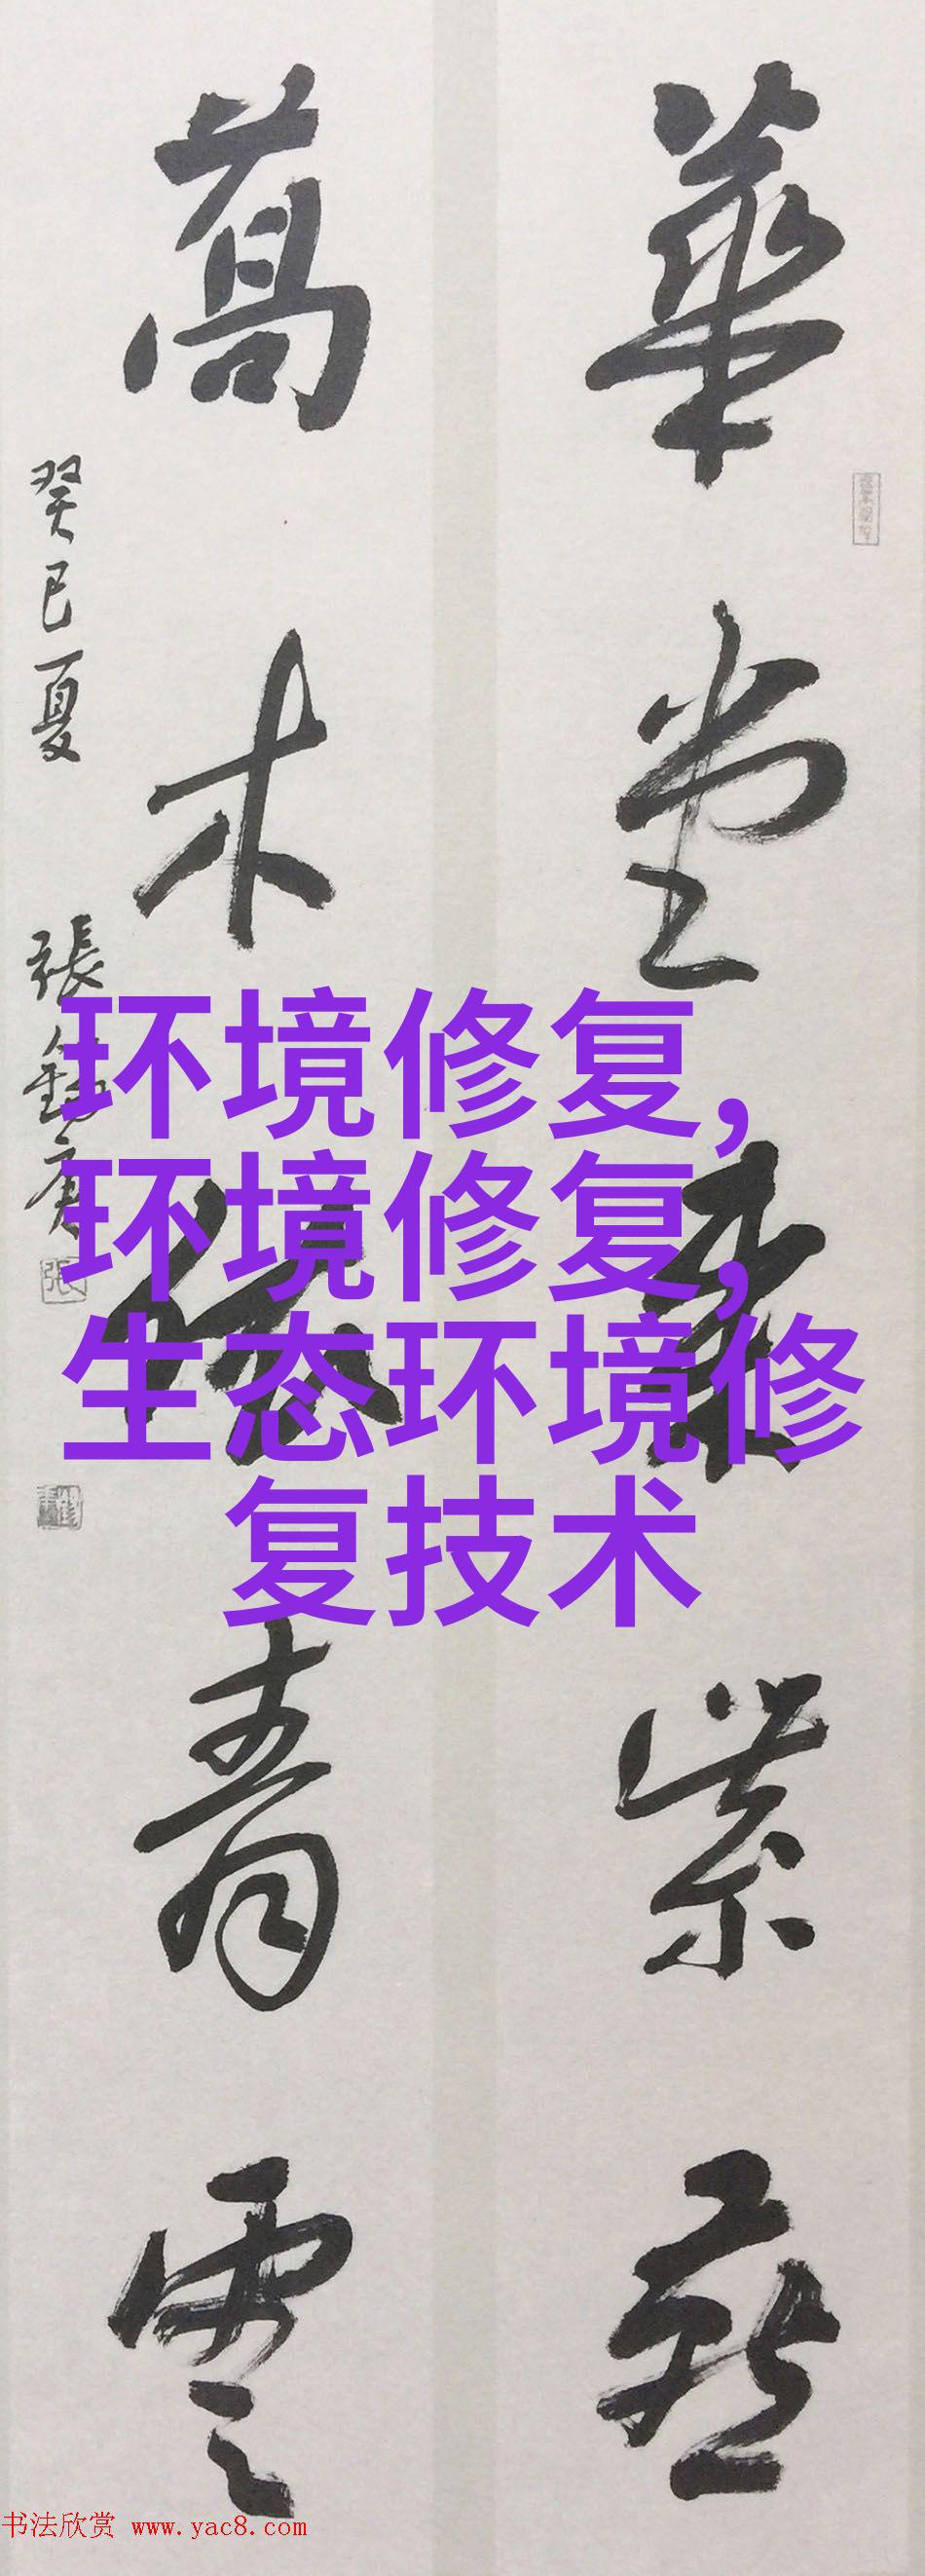 華堂紫
萬木青雲
癸巳夏 張錫庚
环境修复,
环境修复,
生态环境修
复技术
书法欣赏 www.yac8.com